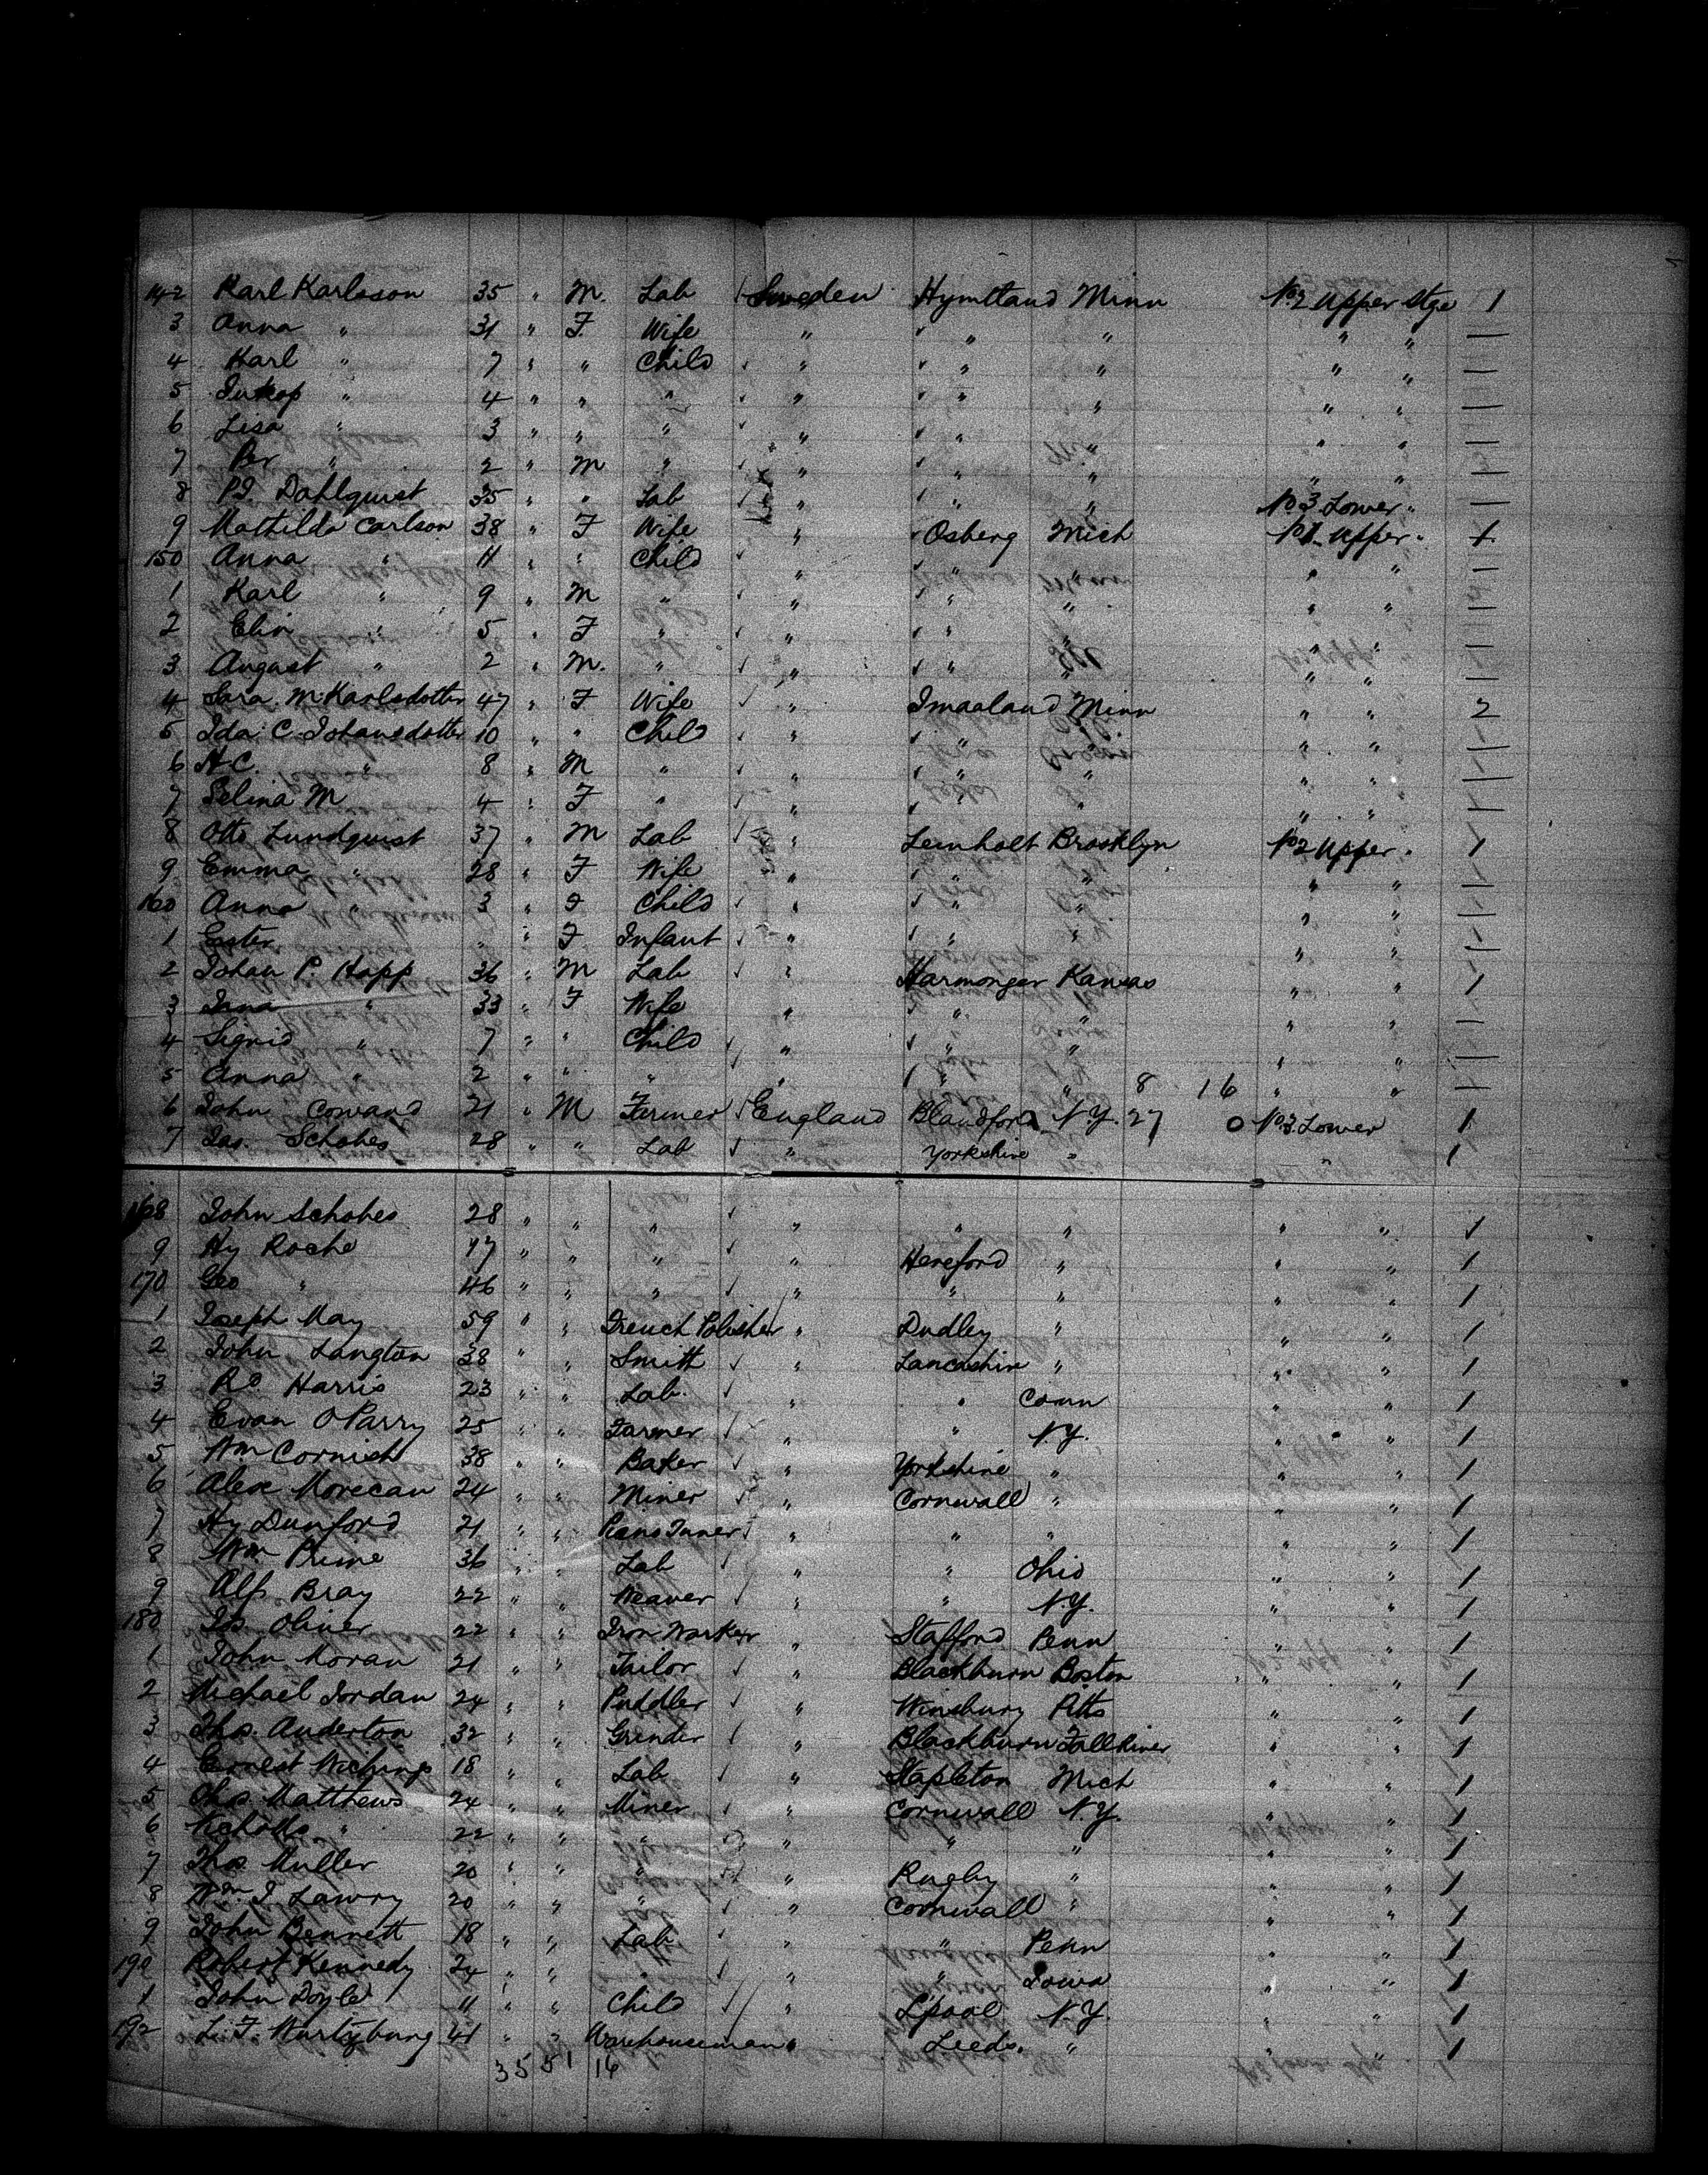 142 Karl Karlsson 35 " M. Lab Sweden Hymttand Minn No 2 Upper Stge 1
3 Anna " 31 " F. Wife " " " " " —
4 Karl " 7 " " Child " " " " " —
5 " 4 " " " " " " " " —
6 Lisa " 3 " " " " " " " " —
7 Per " 2 " M " " " " " " —
8 P.J. Dahlquist 35 " " Lab " " " No 3 Lower " —
9 Mathilda Carlson 38 " F Wife " Osberg Mich No 1 Upper " 1
150 Anna " 11 " " Child " " " " " —
1 Karl " 9 " M " " " " " " —
2 Elin " 5 " F " " " " " " —
3 August " 2 " M. " " " " " " —
4 Sara M Karlsdotter 47 " F Wife " Smaaland Minn " " 2
5 Ida C. Johansdotter 10 " " Child " " " " " —
6 A C. " 8 " M " " " " " " —
7 Selina M 4 " F " " " " " " —
8 Otto Lundquist 37 " M Lab " Leinholt Brooklyn No 2 Upper " 1
9 Emma " 28 " F Wife " " " " " —
160 Anna " 3 " F Child " " " " " —
1 Ester " " F Infant " " " " " —
2 Johan P. Happ 36 " M Lab " Harmonger Kansas " " 1
3 " 33 " F Wife " " " " " —
4 Sigrid " 7 " " Child " " " " " —
5 Anna " 2 " " " " " " 8 16 " " —
6 John Coward 21 " M Farmer England Blandford N.Y. 27 0 No 3 Lower 1
7 Jas. Schohes 28 " " Lab " Yorkshire " " 1
168 John Schohes 28 " " " " " " " " 1
9 Hy Roche 17 " " " " Hereford " " " 1
170 Geo " 46 " " " " " " " " 1
1 Joseph May 59 " " French Polisher " Dudley " " " 1
2 John Langton 38 " " Smith " Lancashire " " " 1
3 Rd Harris 23 " " Lab. " " Conn " " 1
4 Evan O Parry 25 " " Farmer " " N.Y. " " 1
5 Wm Cornish 38 " " Baker " Yorkshire " " " 1
6 Alex Morecan 24 " " Miner " Cornwall " " " 1
7 Hy Dunford 21 " " Piano Tuner " " " " " 1
8 Wm Prime 36 " " Lab " " Ohio " " 1
9 Alf. Bray 22 " " Weaver " " N.Y. " " 1
180 Js. Oliver 22 " " Iron Worker " Stafford Penn " " 1
1 John Moran 21 " " Tailor " Blackburn Boston " " 1
2 Michael Jordan 24 " " Puddler " Winsbury Pitts " " 1
3 Thos. Anderton 32 " " Grinder " Blackburn Fall River " " 1
4 Ernest 18 " " Lab " Stapleton Mich " " 1
5 Chas. Matthews 24 " " Miner " Cornwall N.Y. " " 1
6 Nicholls " 22 " " " " " " " " 1
7 Thos. Muller 20 " " " " Rugby " " " 1
8 Wm. J Lawry 20 " " " " Cornwall " " " 1
9 John Bennett 18 " " Lab " " Penn " " 1
190 Robert Kennedy 24 " " " " " Iowa " " 1
1 John Doyle 11 " " Child " L'pool N.Y. " " 1
192 L. F. Wurtzburg 41 " " Warehouseman " Leeds. " " " 1
35 51 16